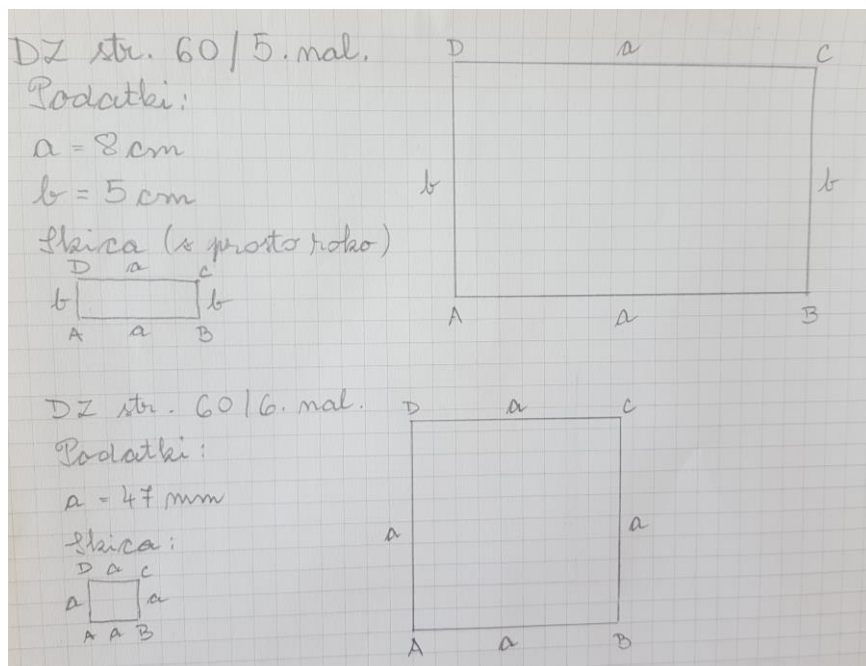 DZ str. 60/5. nal.
Podatki:
a = 8 cm
b = 5 cm
Skica (s prosto roko)
D a C
b b
A a B
D a C
b b
A a B
DZ str. 60/6. nal.
Podatki:
a = 47 mm
Skica:
D a C
a a
A a B
D a C
a a
A a B